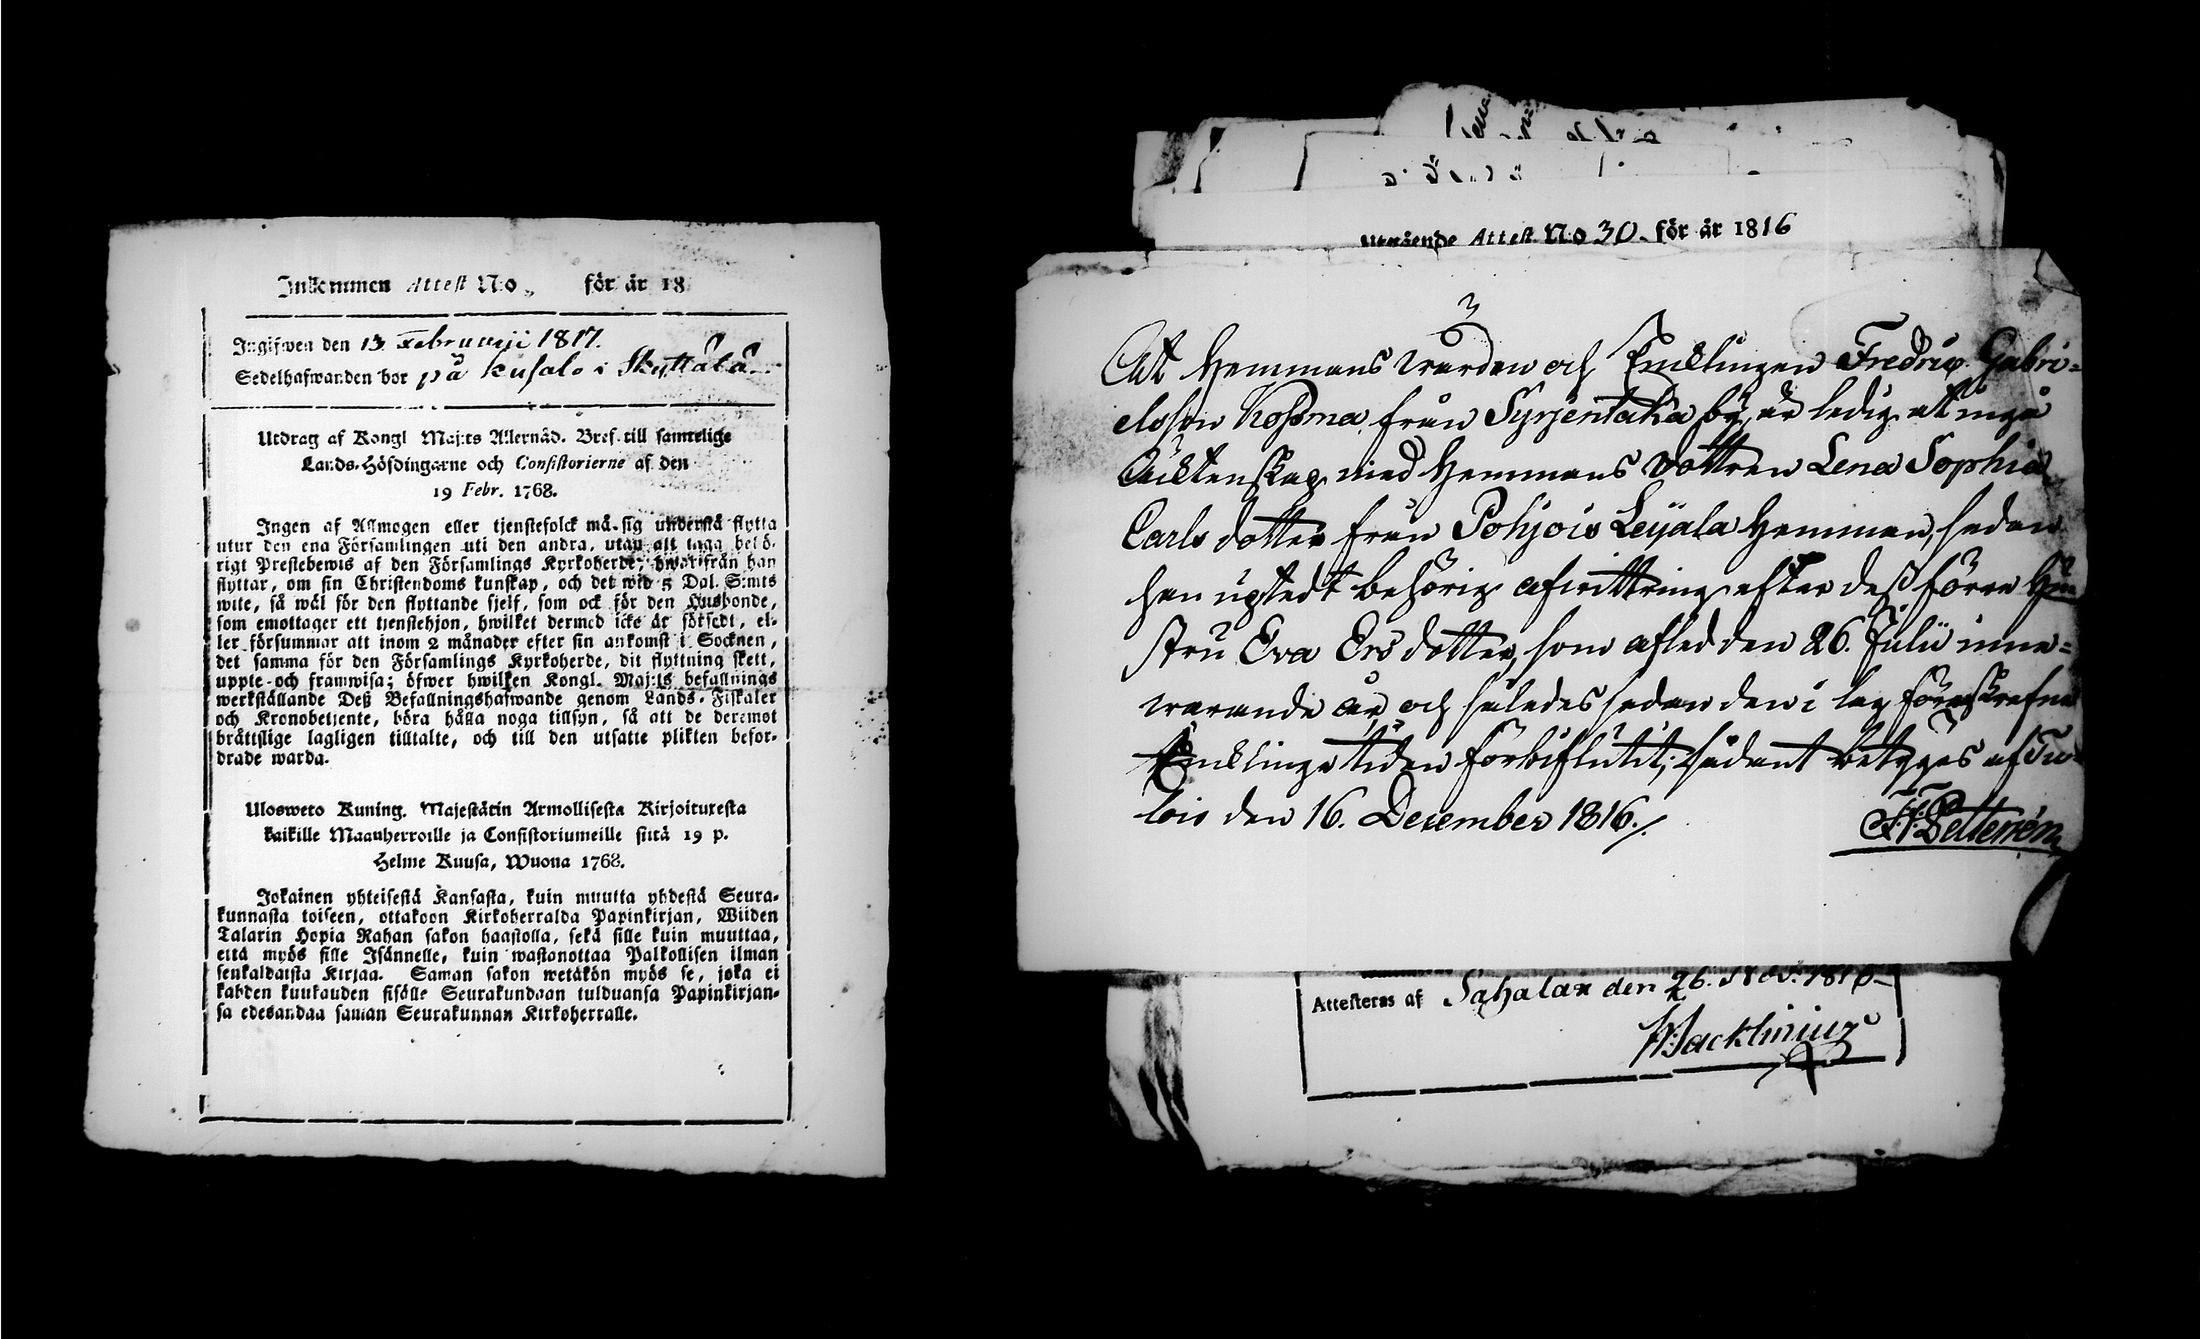 Inkommen Attest No för år 18
Ingifwen den 13 Februarii 1817.
Sedelhafwanden bor på Kusala i Skyttälä
Utdrag af Kongl Maj:ts Allernåd. Bref till samtelige
Lands-Höfdingarne och Consistorierne af den
19 Febr. 1768.
Ingen af Allmogen eller tjenstefolck må sig understå flytta
utur den ena Församlingen uti den andra, utan att taga behö-
rigt Prestebewis af den Församlings Kyrkoherde, hwarifrån han
flyttar, om sin Christendoms kunskap, och det wid 5 Dal. S:mts
wite, så wäl för den flyttande sjelf, som ock för den Husbonde,
som emottager ett tjenstehjon, hwilket dermed icke är försedt, el-
ler försummar att inom 2 månader efter sin ankomst i Socknen,
det samma för den Församlings Kyrkoherde, dit flyttning skett,
uppte och framwisa; öfwer hwilken Kongl. Maj:ts befallnings
werkställande Deß Befallningshafwande genom Lands-Fiskaler
och Kronobetjente, böra hålla noga tillsyn, så att de deremot
bråttslige lagligen tilltalte, och till den utsatte plikten befor-
drade warda.
Ulosweto Kuning. Majestätin Armollisesta Kirjoituresta
kaikille Maanherroille ja Consistoriumeille siitä 19 p.
Helme Kuusa, Wuona 1768.
Jokainen yhteisestä Kansasta, kuin muutta yhdestä Seura-
kunnasta toiseen, ottakoon Kirkoherralda Papinkirjan, Wiiden
Talarin Hopia Rahan sakon haastolla, sekä sille kuin muuttaa,
että myös sille Isännelle, kuin wastanottaa Palkollisen ilman
senkaldaista Kirjaa. Saman sakon wetäkön myös se, joka ei
kahden kuukauden sisälle Seurakundaan tulduansa Papinkirjan-
sa edesandaa saman Seurakunnan Kirkoherralle.
Utgående Attest No 30. för år 1816
3
Att Hemmans Wärden och Encklingen Fredric Gabri=
elsson Kossma från Syrjentaka by, är ledig att ingå
Äcktenskap med Hemmans Dottren Lena Sophia
Carls dotter från Pohjois Leijala Hemman, sedan
han upstedt behörig afwittring efter deß förre Hu
stru Eva Ers dotter, som afled den 26. Julii inne=
warande år, och således sedan den i lag föreskrefne
Encklinge tiden förbiflutit; sådant betyges af Tu
lois den 16. December 1816./.
Attesteras af Sahalax den 26. Nov. 1816